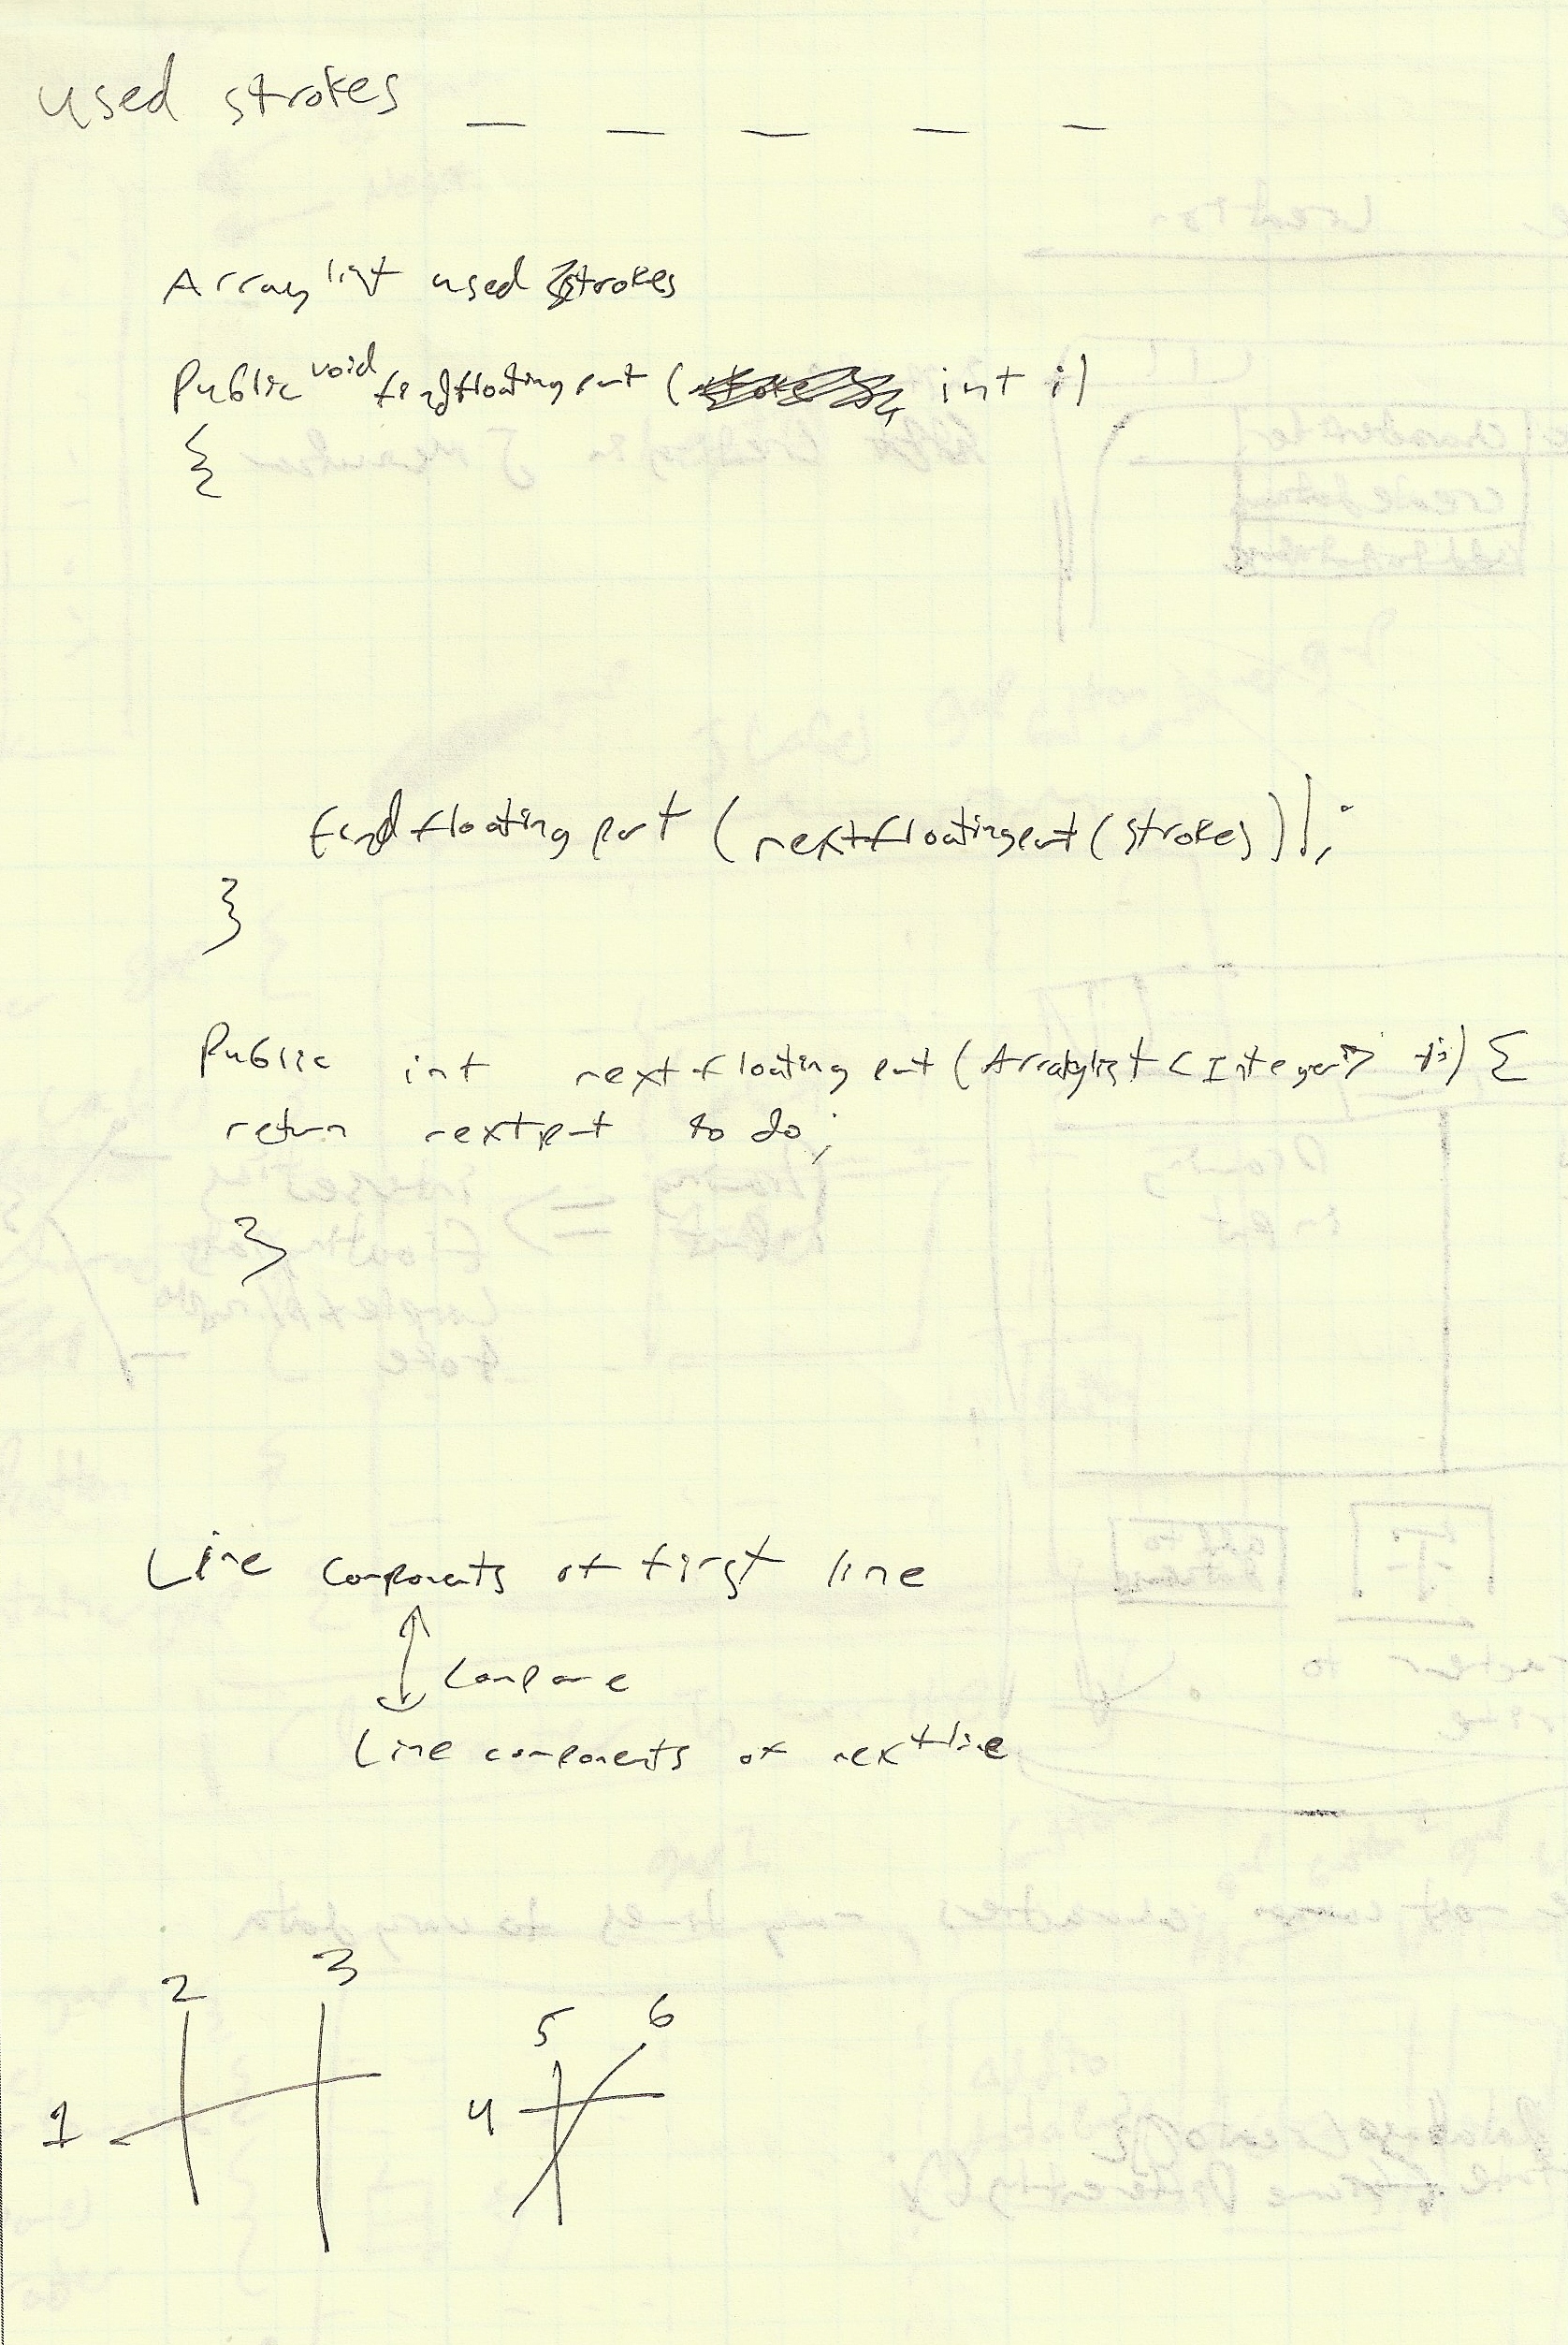 used strokes _ _ _ _ _
Arraylist used strokes
Public void findfloatingpart ( int i)
{
findfloatingpart (nextfloatingpart(strokes));
}
Public int nextfloatingpart (Arraylist <Integer> ) {
return nextpart to do;
}
Line components of first line
compare
Line components of next line
2 3
5 6
1 4